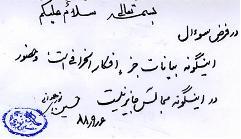 بسمه تعالی سلام علیکم
در فرض سؤال
اینگونه بیانات جزء افکار انحرافی است و حضور
در اینگونه مجالس جایز نیست
حسین